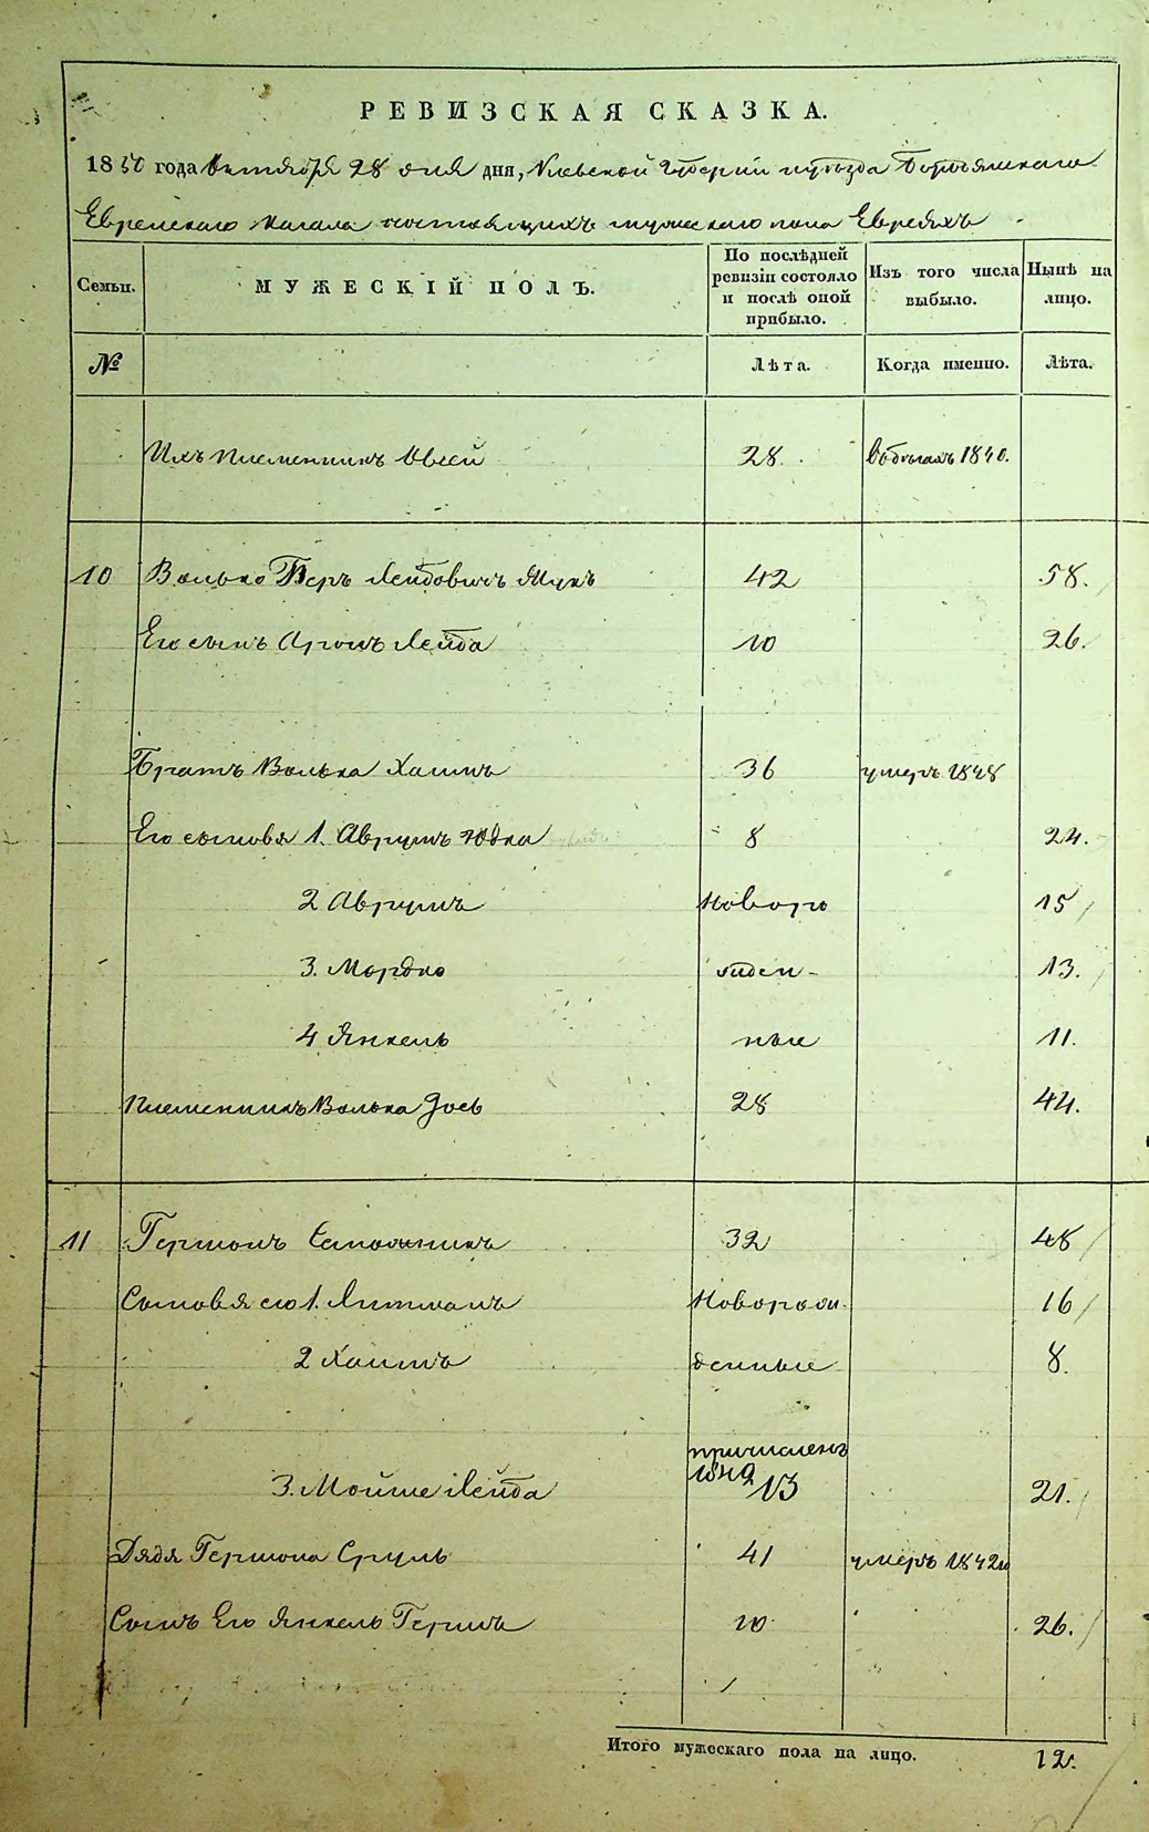 РЕВИЗСКАЯ СКАЗКА.
1850 года Октября 28 дня дня, Киевской Губернии и уѣзда Бородянскаго
Еврейскаго Кагала состоящихъ мужескаго пола Евреяхъ
Семьи. МУЖЕСКІЙ ПОЛЪ. По послѣдней ревизіи состояло и послѣ оной прибыло. Изъ того числа выбыло. Нынѣ на лицо.
№ Лѣта. Когда именно. Лѣта.
Ихъ племенникъ 28. 1840.
10 Волько Беръ Лейбовичъ 42 58.
Его сынъ Аронъ Лейба 10 26.
Братъ Волька Хаимъ 36 умеръ 1848
Его сыновя 1. Аврумъ Юдка 8 24.
2 Аврумъ Новоро 15
3. Мордко жден- 13.
4 Янкель ные 11.
Племенникъ Волька Іось 28 44.
11 Гершонъ 32 48
Сыновя его 1. Литманъ Новорож- 16
2 Хаимъ денные 8.
причисленъ
3. Мойше Лейба 1842 13 21.
Дядя Гершона Сруль 41 умеръ 1842
Сынъ Его Янкель Гершъ 10 26.
Итого мужескаго пола на лицо. 12.